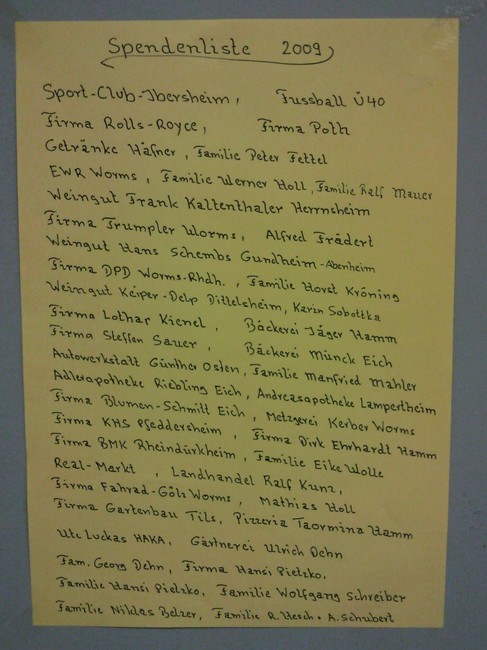 Spendenliste 2009
Sport-Club-Ibersheim, Fussball Ü40
Firma Rolls-Royce, Firma Poth
Getränke Häfner, Familie Peter Fettel
EWR Worms, Familie Werner Holl, Familie Ralf Mauer
Weingut Frank Kaltenthaler Herrnsheim
Firma Trumpler Worms, Alfred Frädert
Weingut Hans Schembs Gundheim-Abenheim
Firma DPD Worms-Rhdh., Familie Horst Kröning
Weingut Keiper-Delp Dittelsheim, Karin Sobottka
Firma Lothar Kienel, Bäckerei Jäger Hamm
Firma Steffen Sauer, Bäckerei Münck Eich
Autowerkstatt Günther Osten, Familie Manfried Mahler
Adlerapotheke Riebling Eich, Andreasapotheke Lampertheim
Firma Blumen-Schmitt Eich, Metzgerei Kerber Worms
Firma KHS Pfeddersheim, Firma Dirk Ehrhardt Hamm
Firma BMK Rheindürkheim, Familie Eike Wolle
Real-Markt, Landhandel Ralf Kunz,
Firma Fahrad-Göls Worms, Mathias Holl
Firma Gartenbau Tils, Pizzeria Taormina Hamm
Ute Luckas HAKA, Gärtnerei Ulrich Dehn
Fam. Georg Dehn, Firma Hansi Pietzko,
Familie Hansi Pietzko, Familie Wolfgang Schreiber
Familie Niklas Belzer, Familie R. Hesch + A. Schubert